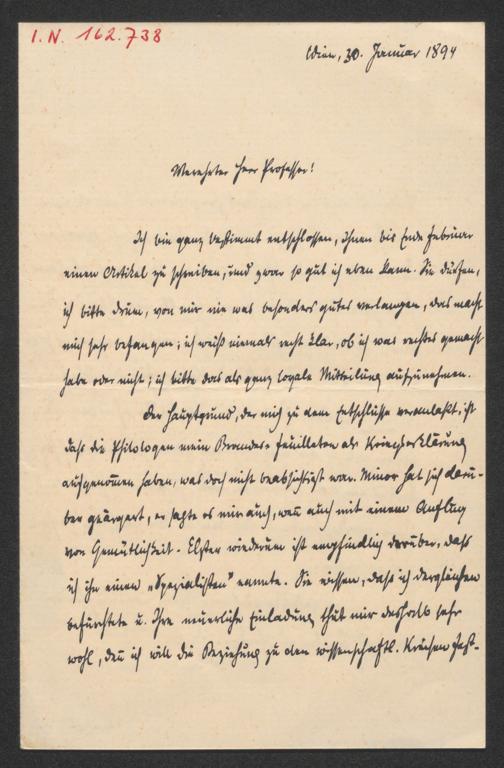 I. N. 162.738
Wien, 30. Januar 1894
Verehrter Herr Professor!
Ich bin ganz bestimmt entschlossen, Ihnen bis Ende Februar
einen Artikel zu schreiben, und zwar so gut ich eben kann. Sie dürfen,
ich bitte drum, von mir nie was besonders gutes verlangen, das macht
mich sehr befangen; ich weiß niemals recht klar, ob ich was rechtes gemacht
habe oder nicht; ich bitte das als ganz loyale Mitteilung aufzunehmen.
Der Hauptgrund, der mich zu dem Entschlusse veranlaßt, ist
daß die Philologen mein Brandes-Feuilleton als Kriegserklärung
aufgenommen haben, was doch nicht beabsichtigt war. Minor hat sich darü-
ber geärgert, er sagte es mir auch, wenn auch mit einem Anflug
von Gemütlichkeit. Elster wiederum ist empfindlich darüber, daß
ich ihn einen „Spezialisten" nannte. Sie wissen, daß ich dergleichen
befürchtete u. Ihre neuerliche Einladung thut mir deshalb sehr
wohl, denn ich will die Beziehung zu den wissenschaftl. Kreisen fest-